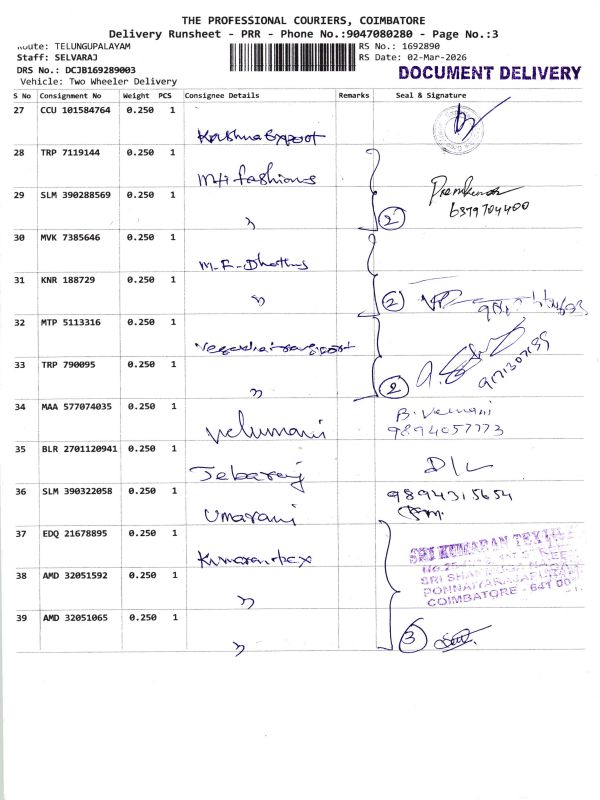 THE PROFESSIONAL COURIERS, COIMBATORE
Delivery Runsheet - PRR - Phone No.:9047080280 - Page No.:3
Route: TELUNGUPALAYAM
RS No.: 1692890
Staff: SELVARAJ
RS Date: 02-Mar-2026
DRS No.: DCJB169289003
DOCUMENT DELIVERY
Vehicle: Two Wheeler Delivery
S No Consignment No Weight PCS Consignee Details Remarks Seal & Signature
27 CCU 101584764 0.250 1
Krishna Export
28 TRP 7119144 0.250 1
fashions
29 SLM 390288569 0.250 1
6379704400
" 2
30 MVK 7385646 0.250 1
M.F.
31 KNR 188729 0.250 1
" 2
32 MTP 5113316 0.250 1
33 TRP 790095 0.250 1
" 2
34 MAA 577074035 0.250 1
Velumani
B. Velmani
9894057773
35 BLR 2701120941 0.250 1
Jebaraj
D/L
36 SLM 390322058 0.250 1
Umarani
9894315654
37 EDQ 21678895 0.250 1
Kumaran tex
SRI KUMARAN TEXTILE
PONNAIYARAJAPURAM
COIMBATORE - 641 001
38 AMD 32051592 0.250 1
"
39 AMD 32051065 0.250 1
" 3